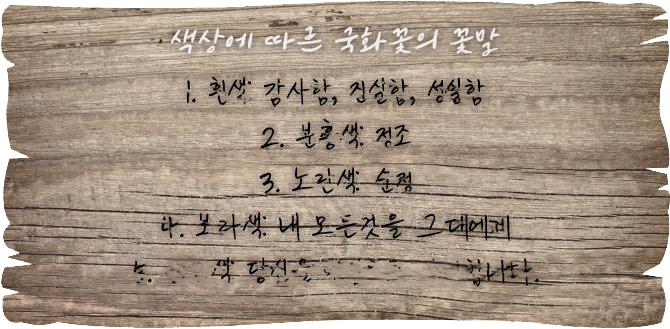 색상에 따른 국화꽃의 꽃말
1. 흰색: 감사함, 진실함, 성실함
2. 분홍색: 정조
3. 노란색: 순정
4. 보라색: 내 모든것을 그대에게
5. 색 당신을 합니다.